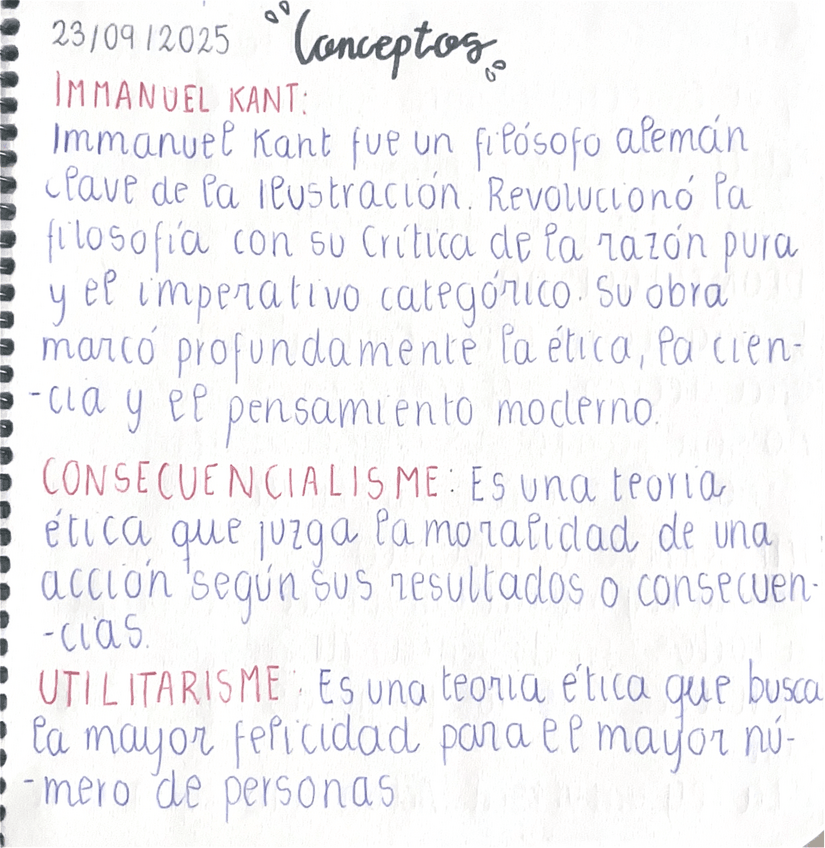 23/09/2025 "Conceptos"
IMMANUEL KANT:
Immanuel Kant fue un filósofo alemán
clave de la Ilustración. Revolucionó la
filosofía con su Crítica de la razón pura
y el imperativo categórico. Su obra
marcó profundamente la ética, la cien-
-cia y el pensamiento moderno.
CONSECUENCIALISME: Es una teoria
ética que juzga la moralidad de una
acción según sus resultados o consecuen-
-cias.
UTILITARISME: Es una teoria ética que busca
la mayor felicidad para el mayor nú-
-mero de personas